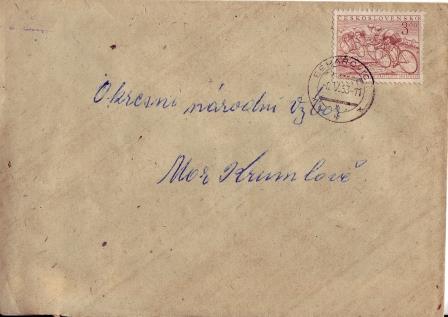 ČESKOSLOVENSKO
3
V.53-11
Okresní národní výbor
Mor Krumlově